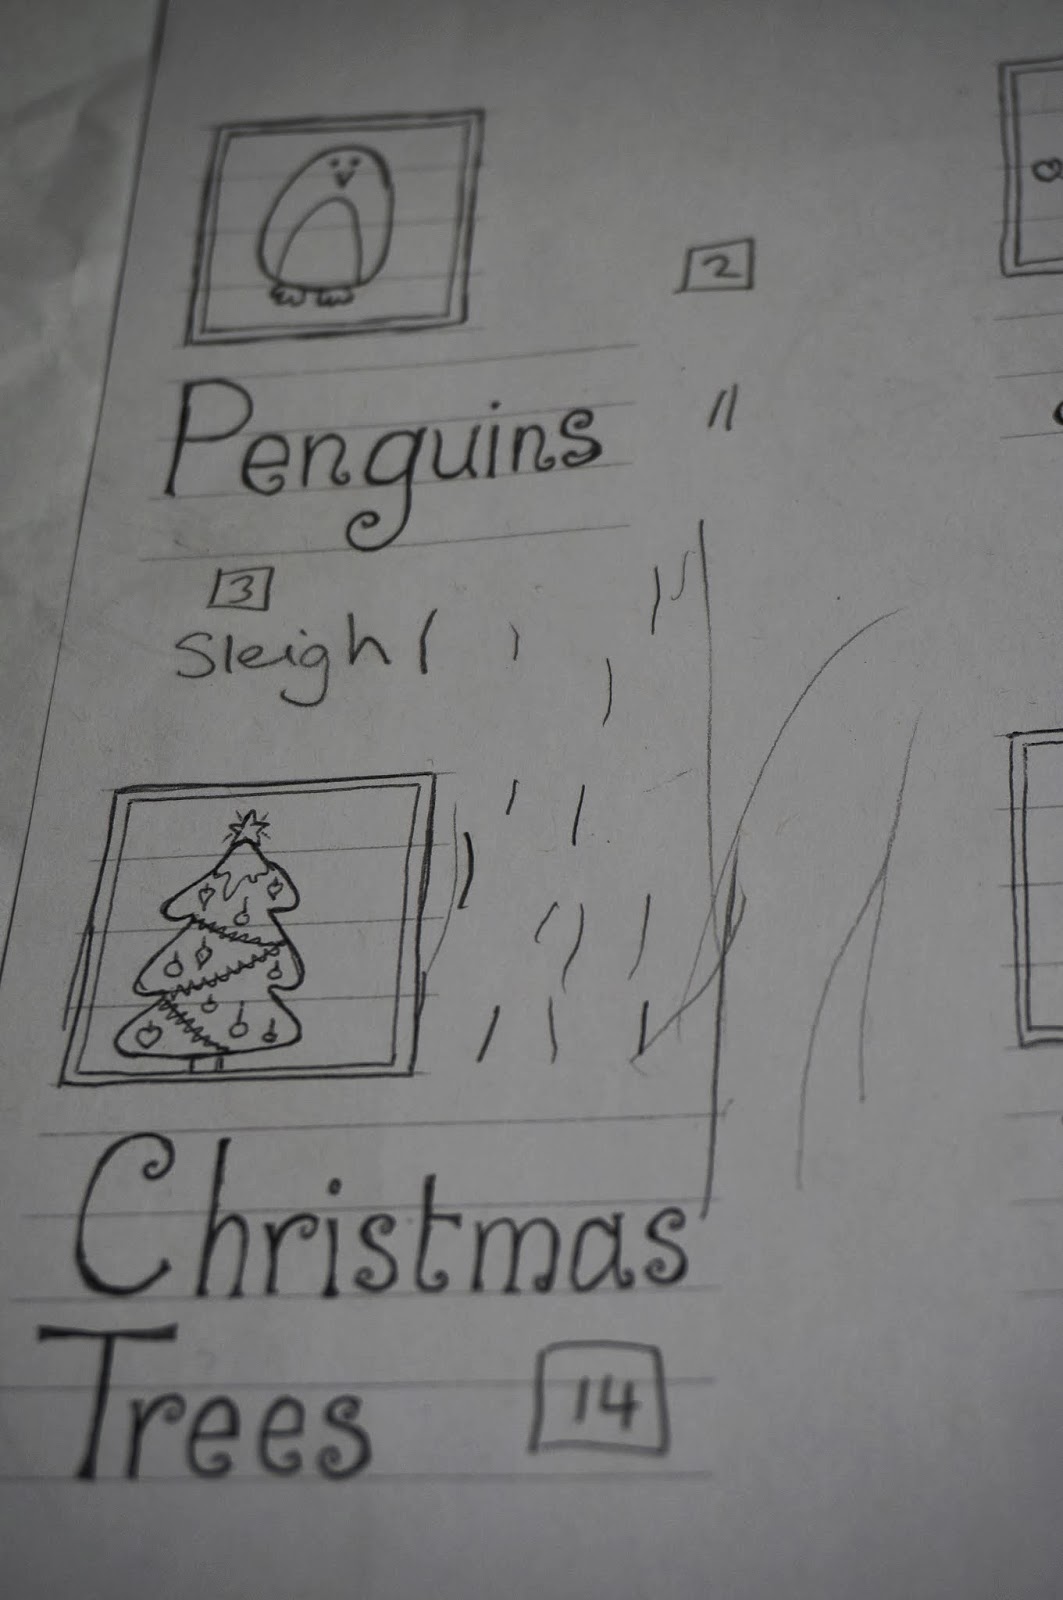 2
Penguins
3
Sleigh
Christmas
Trees
14